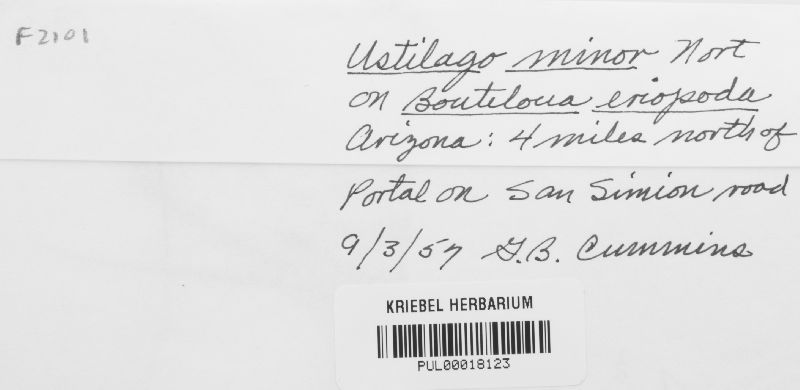 F2101
Ustilago minor Nort
on Bouteloua eriopoda
Arizona: 4 miles north of
Portal on San Simion road
9/3/57 G.B. Cummins
KRIEBEL HERBARIUM
PUL00018123